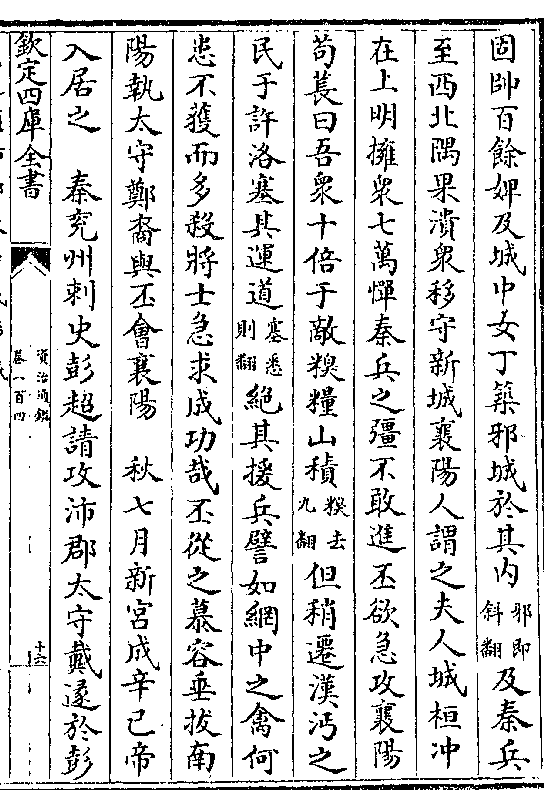 固帥百餘婢及城中女丁築邪城於其內邪即斜翻及秦兵
至西北隅果潰衆移守新城襄陽人謂之夫人城桓沖
在上明擁衆七萬憚秦兵之彊不敢進丕欲急攻襄陽
苟萇曰吾衆十倍于敵糗糧山積糗去九翻但稍遷漢沔之
民于許洛塞其運道塞悉則翻絕其援兵譬如網中之禽何
患不獲而多殺將士急求成功哉丕從之慕容垂拔南
陽執太守鄭裔與丕會襄陽 秋七月新宮成辛巳帝
入居之 秦兖州刺史彭超請攻沛郡太守戴逯於彭
欽定四庫全書
資治通鑑
卷一百四
十六